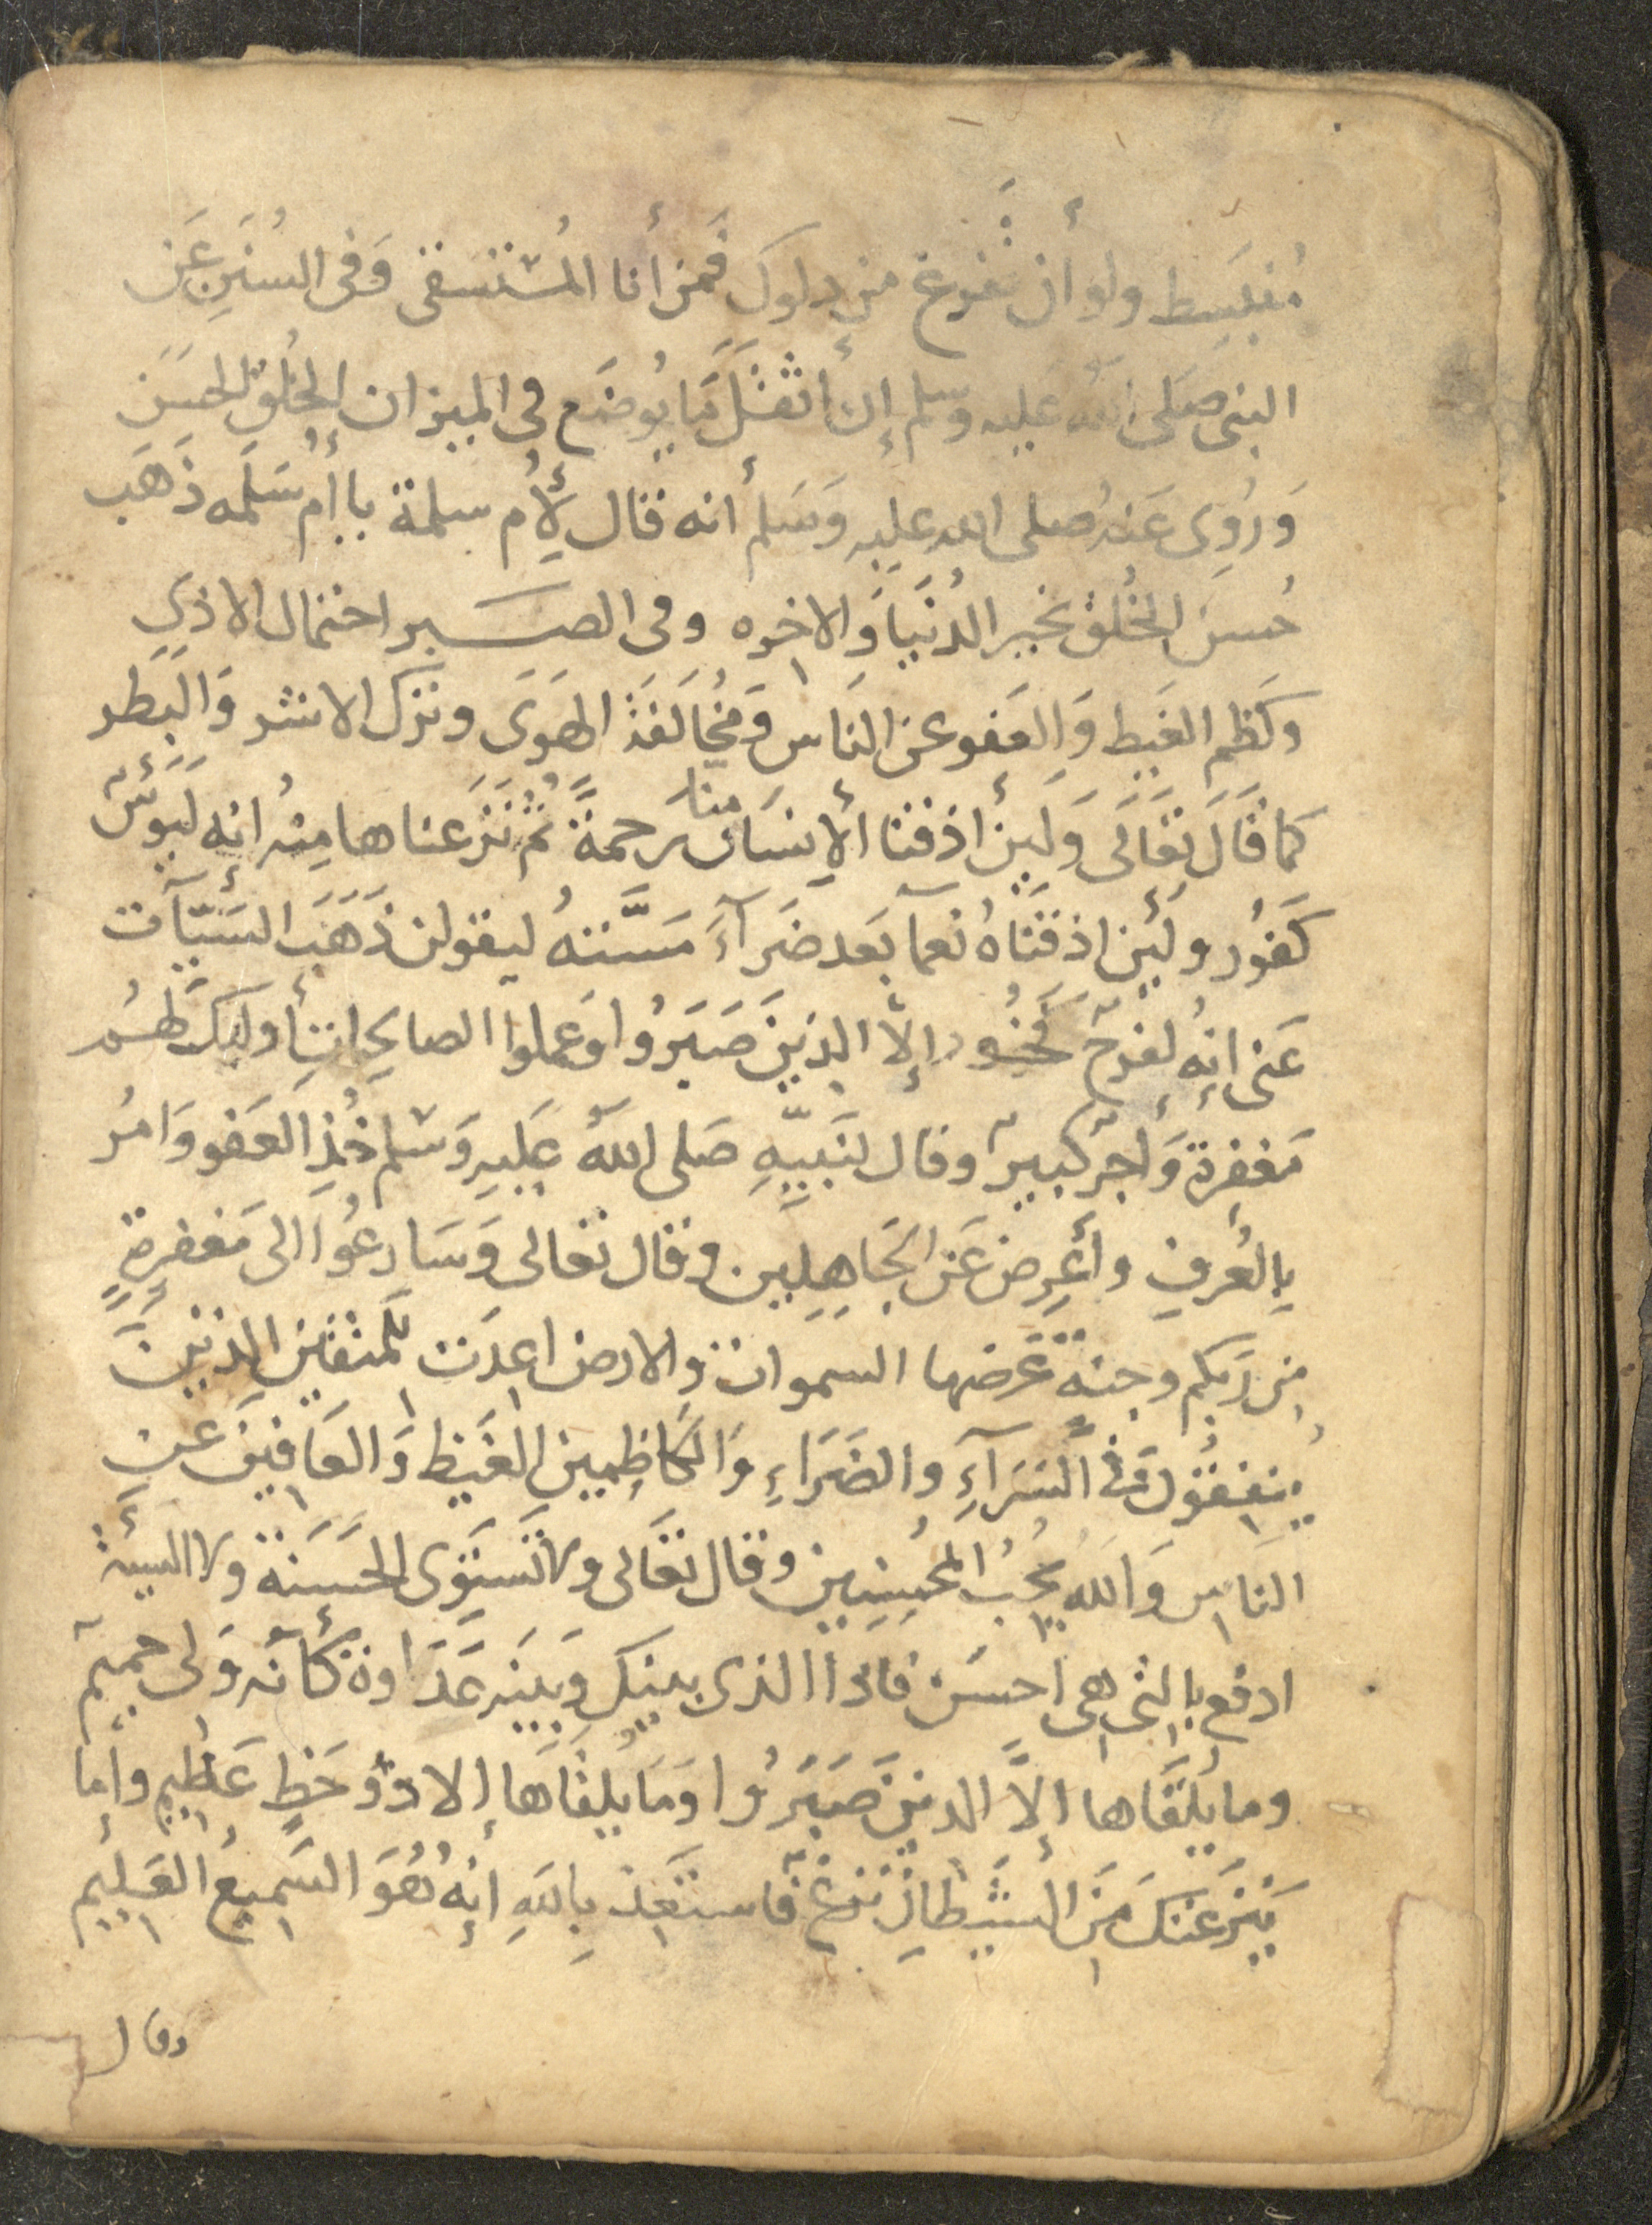 مُنبسِط ولو أن تفرغ من دلوك فمن أنا المُستسقى وَفى السُنَنِ عَن
النبى صَلى الله عليه وسلم إن أثقَلَ مَا يُوضَع فِى الميزان الخُلقُ الحسَن
وَرُوِىَ عَنهُ صلى الله عليه وَسَلم أنه قال لأُم سلمة يا أُم سَلَمه ذَهَب
حُسنَ الخُلق بخير الدُنيَا وَالاخره وفى الصبر احتمال الاذى
وكَظم الغَيط وَالعَفو عن النَاس وَمُخَالَفَة الهَوَى وترك الاشر وَالبَطر
كما قَالَ تَعَالَى وَلَئِن أذقنا الإِنسَانَ منا رحمةً ثُم نَزَعناها مِنهُ انه لَيَؤسٌ
كَفُور ولَئِن اذقنَاهُ نُعمآ بَعد ضَرآءَ مَسَّتهُ ليقولن ذَهَبَ السَيّآت
عَنى إنهُ لفرحٌ فَخُور إلّا الذينَ صَبَرُوا وَعملوا الصالِحِاتِ أولئك لهُم
مَغفِرة وَأجرٌ كبيرٌ وقال لنَبيّهِ صَلى اللهُ عَلَيهِ وَسلم خُذِ العَفو وَامُر
بِالعُرفِ وأعرِض عَن الجَاهِلِين وقال تعالى وَسَارعُوا الى مَغفِرةٍ
مِن رَبكم وجنة عَرضها السموات وَالارض اعِدَت للمتقين الذينَ
يُنفِقُونَ فى السَرآءِ والضَرَاءِ وَالكَاظِمين الغَيظ وَالعَافِينَ عن
النَاس وَاللهُ يُحِبُ المُحسِنِين وقال تعَالى ولا تَستَوِى الحَسَنَة ولا السيئَة
ادفع بالتى هى احسَن فاذا الذى بينك وَبينَه عَدَاوة كأنه وَلى حميمٌ
وما يُلَقَاها إلاَّ الذينَ صَبَرُوا وَمَا يُلقاهَا إلا ذُو حَظٍ عَظيمٍ وإما
يَنزَغنكَ مِنَ الشَيطانِ نزغٌ فاستَعِذ بِاللهِ إنهُ هُوَ السَميعُ العَليم
وقال